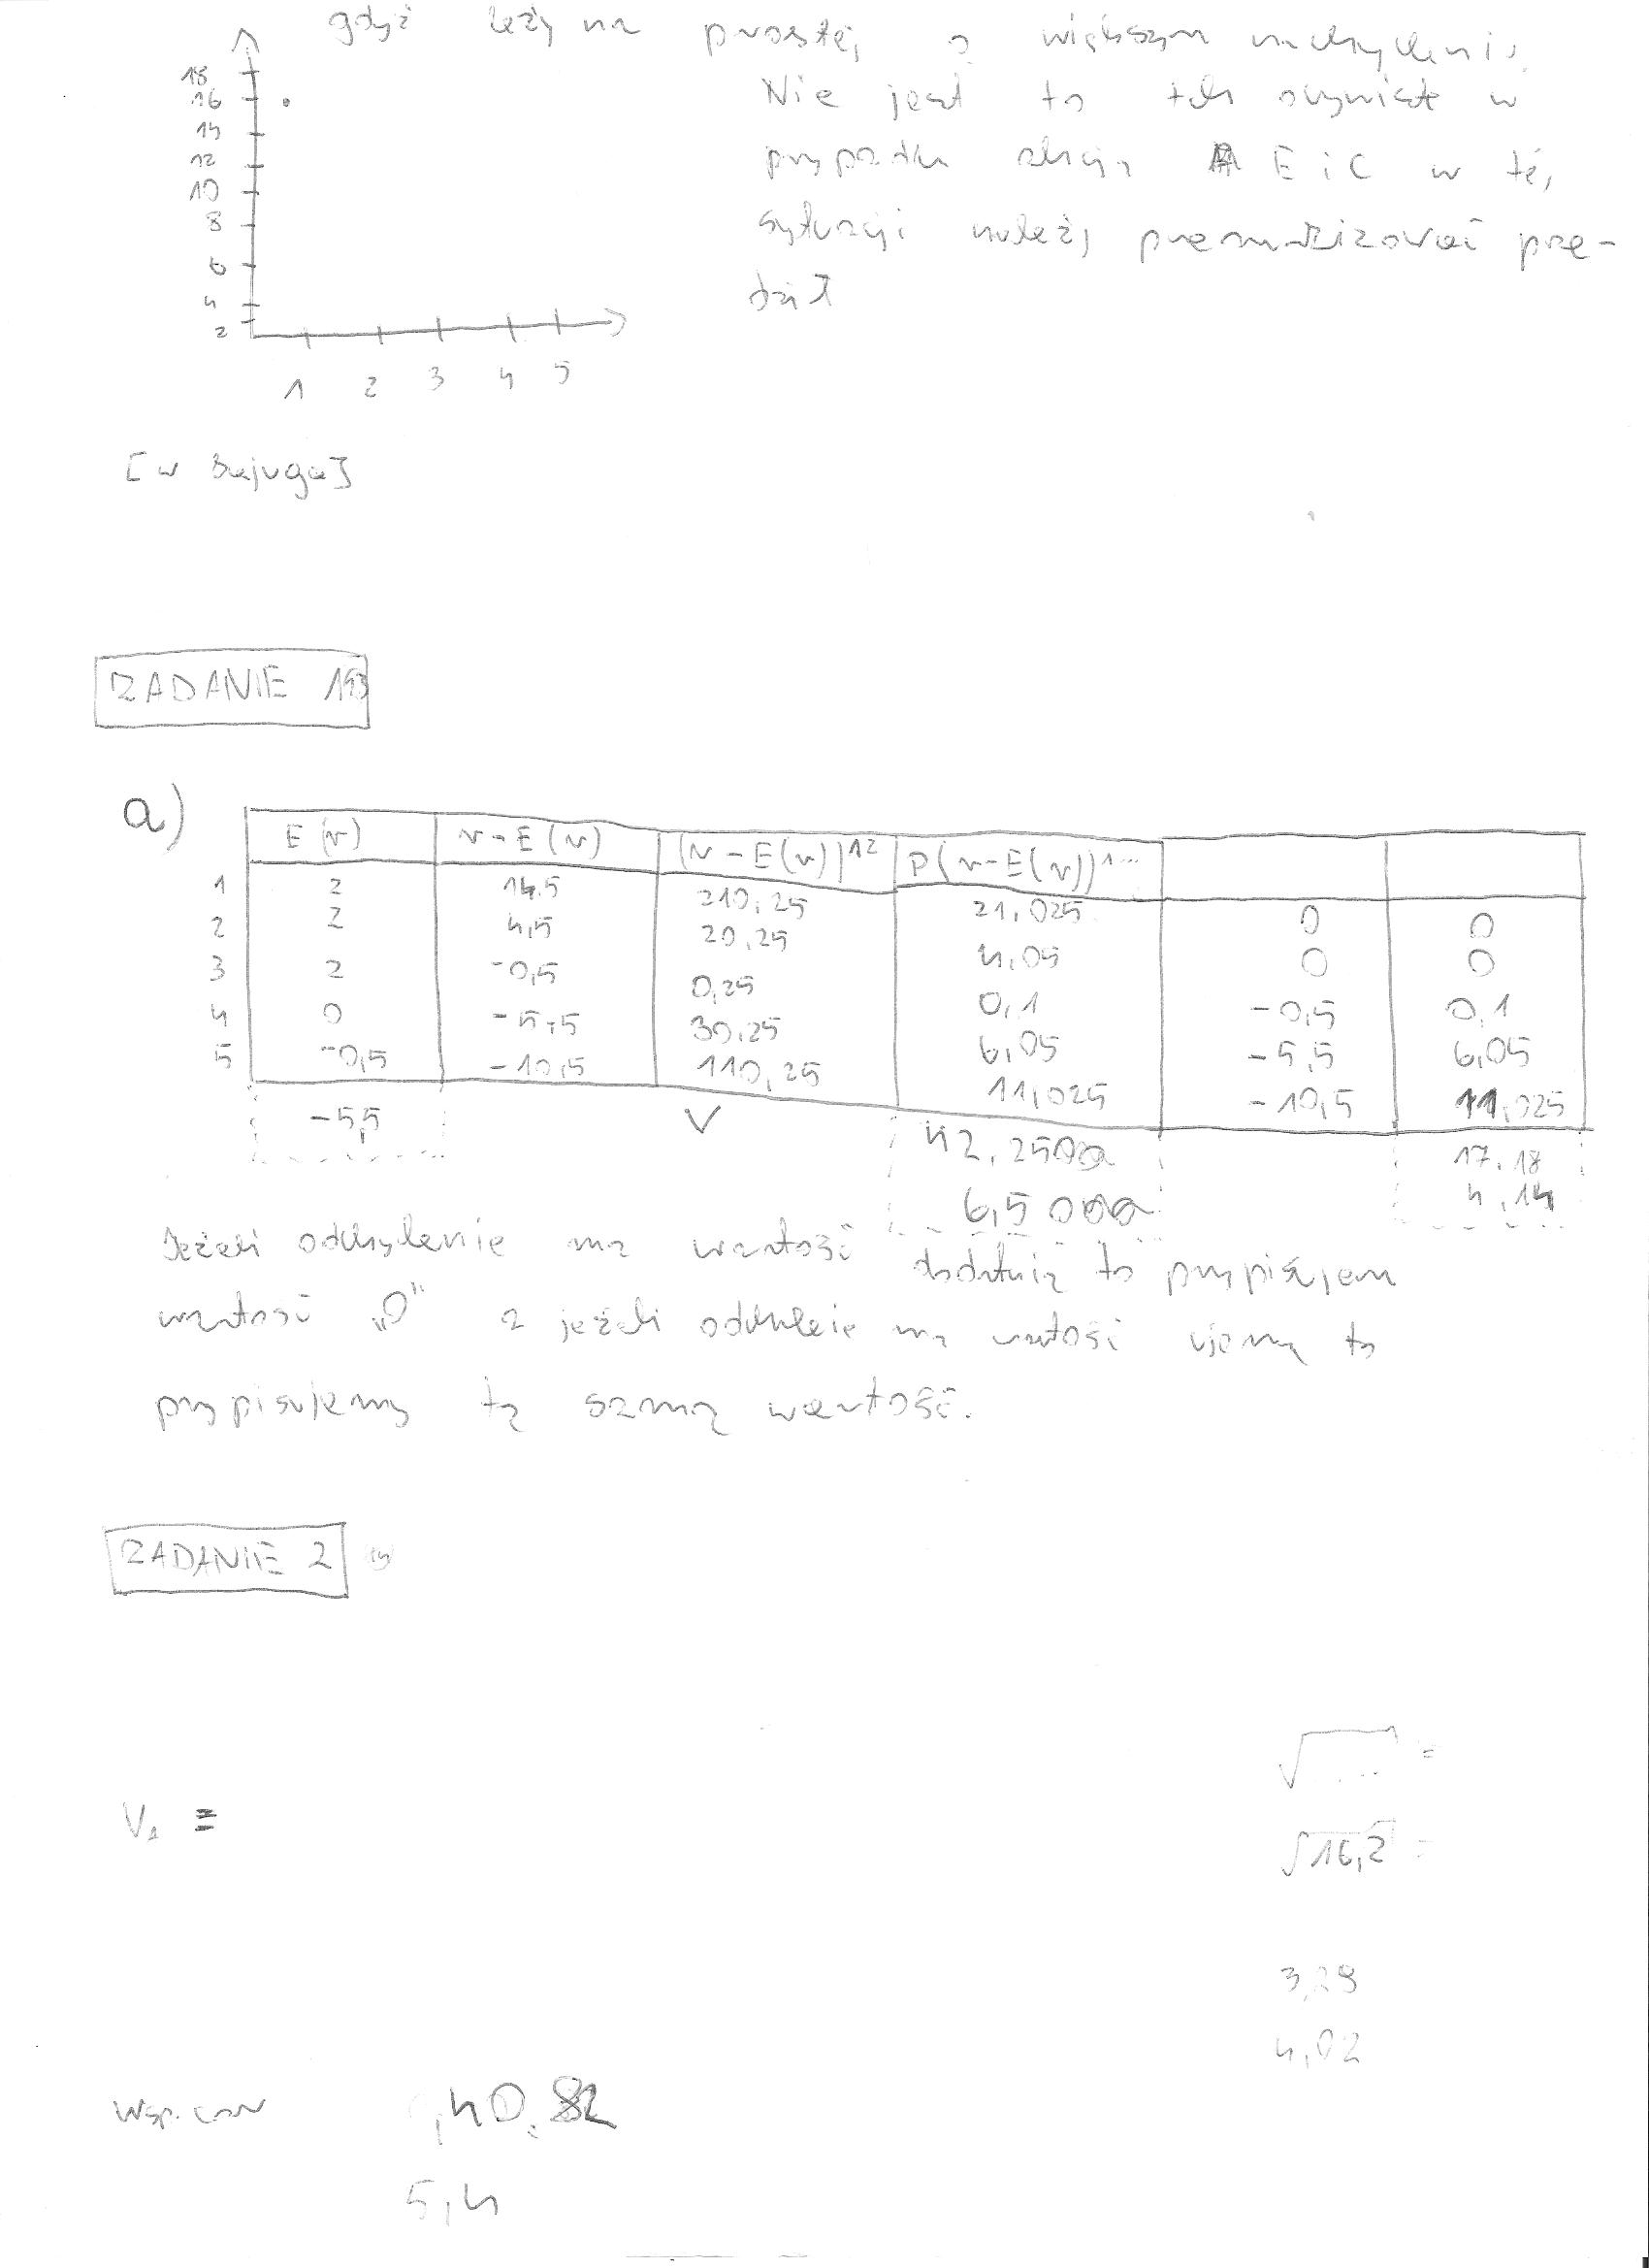 gdyż leży na prostej o większym nachyleniu.
18
16
14
12
10
8
6
4
2
1 2 3 4 5
Nie jest to tak oczywiste w
przypadku akcji E i C w tej
sytuacji należy przeanalizować prze-
dział
[w zajuga]
ZADANIE 193
a)
E(r) r-E(r) (r-E(r))^2 P(r-E(r))^...
1 2 14,5 210,25 21,025 0 0
2 2 4,5 20,25 4,05 0 0
3 2 -0,5 0,25 0,1 -0,5 0,1
4 0 -5,5 30,25 6,05 -5,5 6,05
5 -0,5 -10,5 110,25 11,025 -10,5 11,025
-5,5 V 42,2500 17,18
6,5000 4,14
Jeżeli odchylenie ma wartość dodatnią to przypisujem
wartość „0" a jeżeli odchylenie ma wartość ujemną to
przypisujemy tą samą wartość.
ZADANIE 2
√... =
V₁ =
√16,2 =
3,29
4,02
Wsp. korr ,40,82
5,4